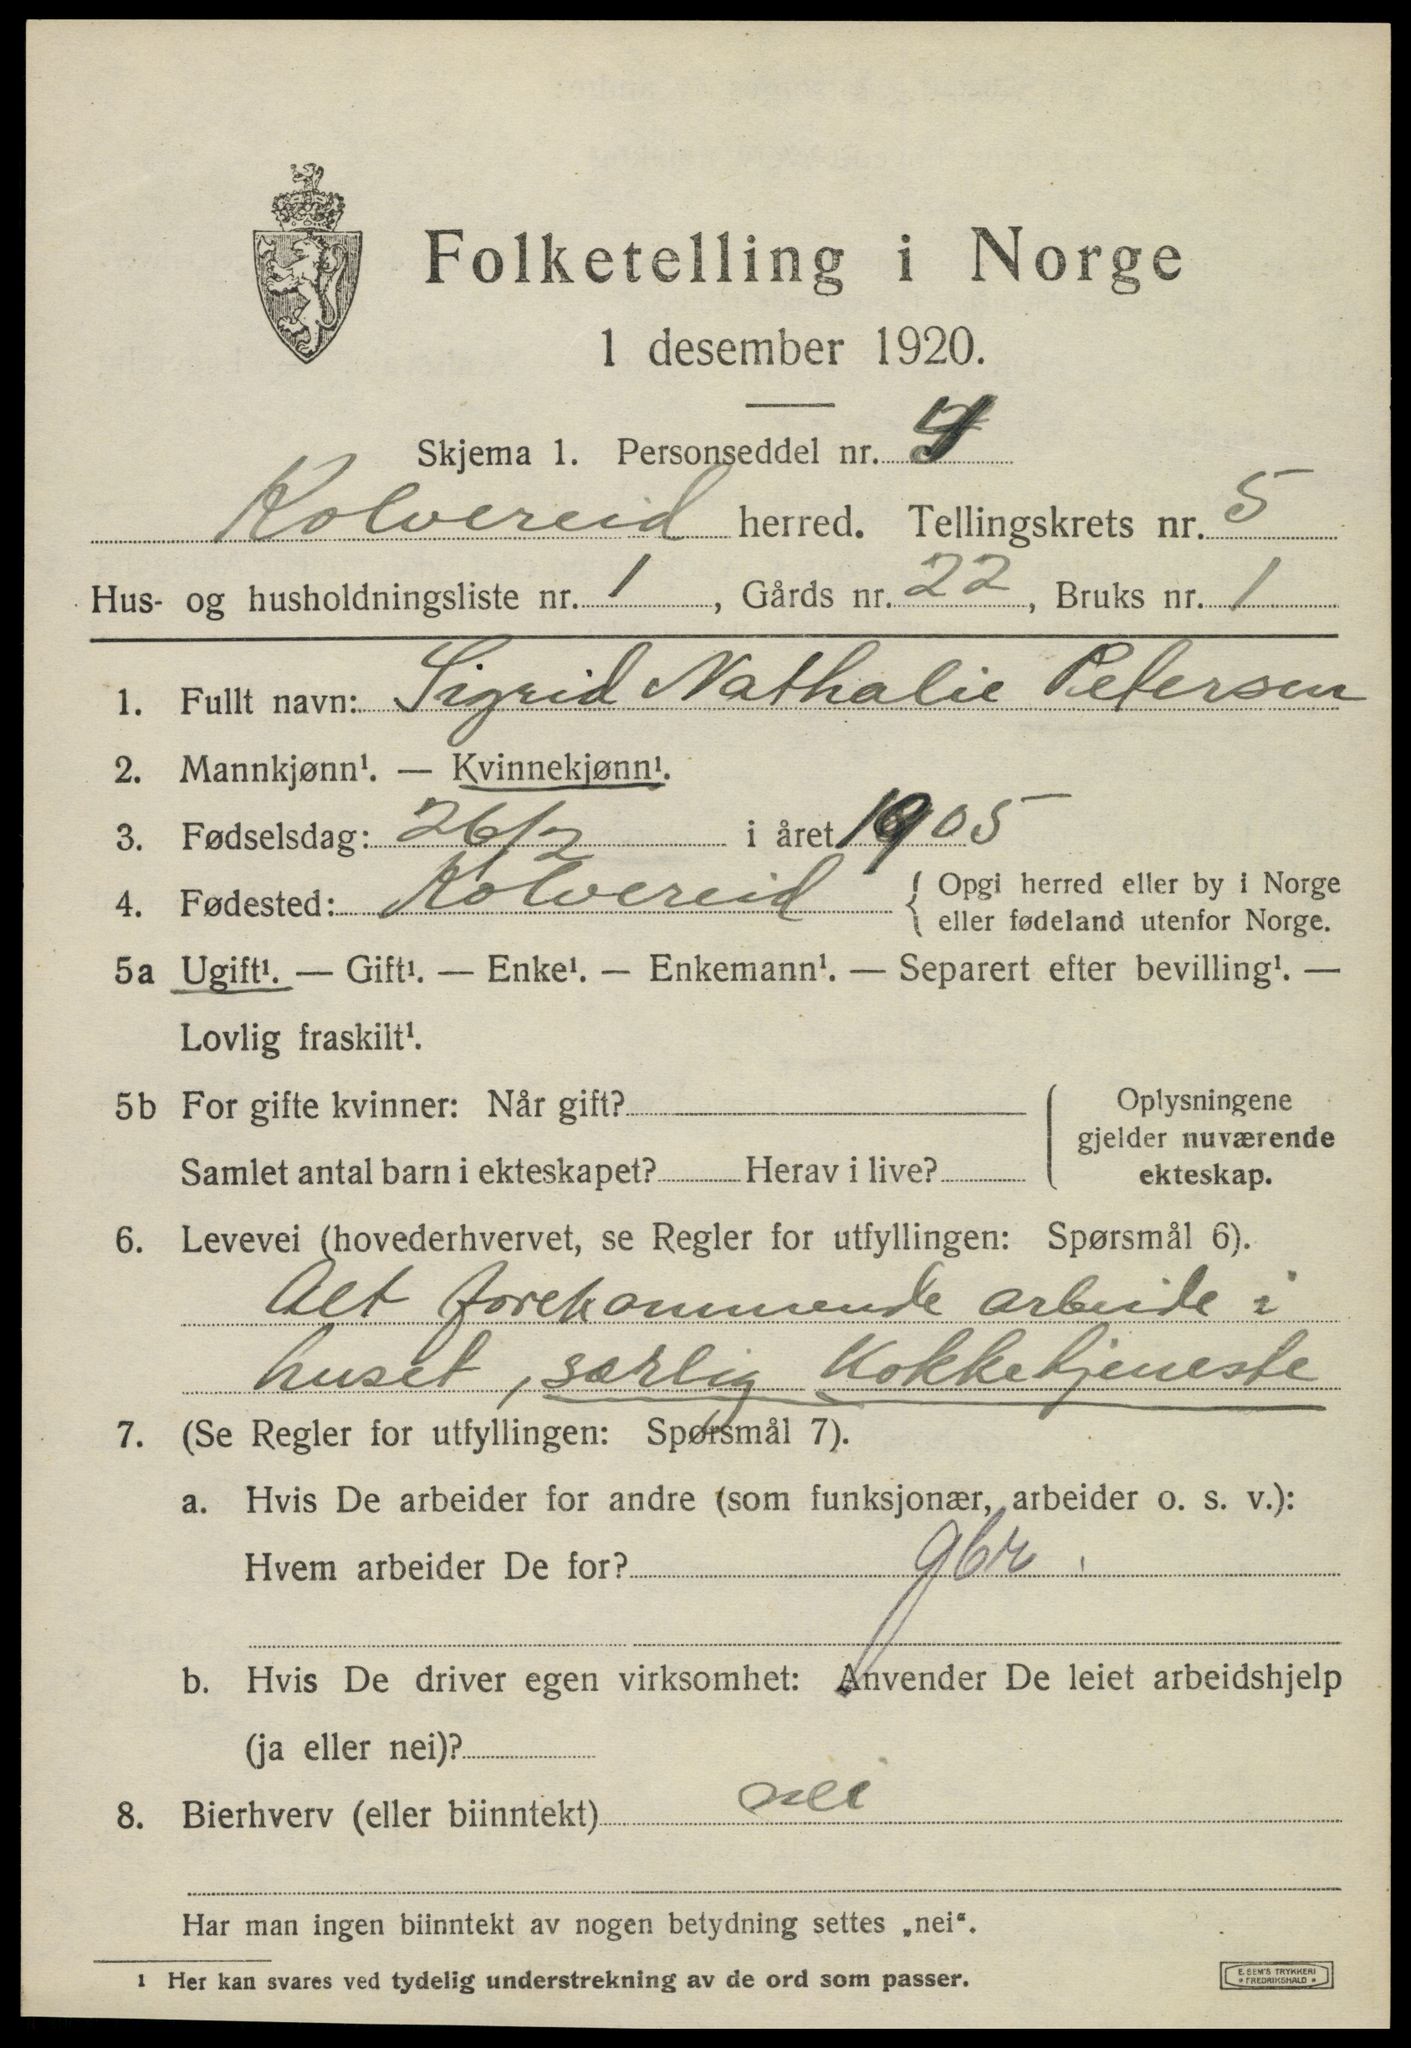 Folketelling i Norge
1 desember 1920.
Skjema 1. Personseddel nr. 4
Kolvereid herred. Tellingskrets nr. 5
Hus- og husholdningsliste nr. 1, Gårds nr. 22, Bruks nr. 1
1. Fullt navn: Sigrid Nathalie Petersen
2. Mannkjønn¹. — Kvinnekjønn¹.
3. Fødselsdag: 26/2 i året 1905
4. Fødested: Kolvereid { Opgi herred eller by i Norge
eller fødeland utenfor Norge.
5a Ugift¹. — Gift¹. — Enke¹. — Enkemann¹. — Separert efter bevilling¹. —
Lovlig fraskilt¹.
5b For gifte kvinner: Når gift?
Samlet antal barn i ekteskapet? Herav i live?
Oplysningene
gjelder nuværende
ekteskap.
6. Levevei (hovederhvervet, se Regler for utfyllingen: Spørsmål 6).
Alt forekommende arbeide i
huset, særlig Kokketjeneste
7. (Se Regler for utfyllingen: Spørsmål 7).
a. Hvis De arbeider for andre (som funksjonær, arbeider o. s. v.):
Hvem arbeider De for? gbr.
b. Hvis De driver egen virksomhet: Anvender De leiet arbeidshjelp
(ja eller nei)?
8. Bierhverv (eller biinntekt) nei
Har man ingen biinntekt av nogen betydning settes „nei“.
1 Her kan svares ved tydelig understrekning av de ord som passer.
E. SEM'S TRYKKERI
* FREDRIKSHALD *